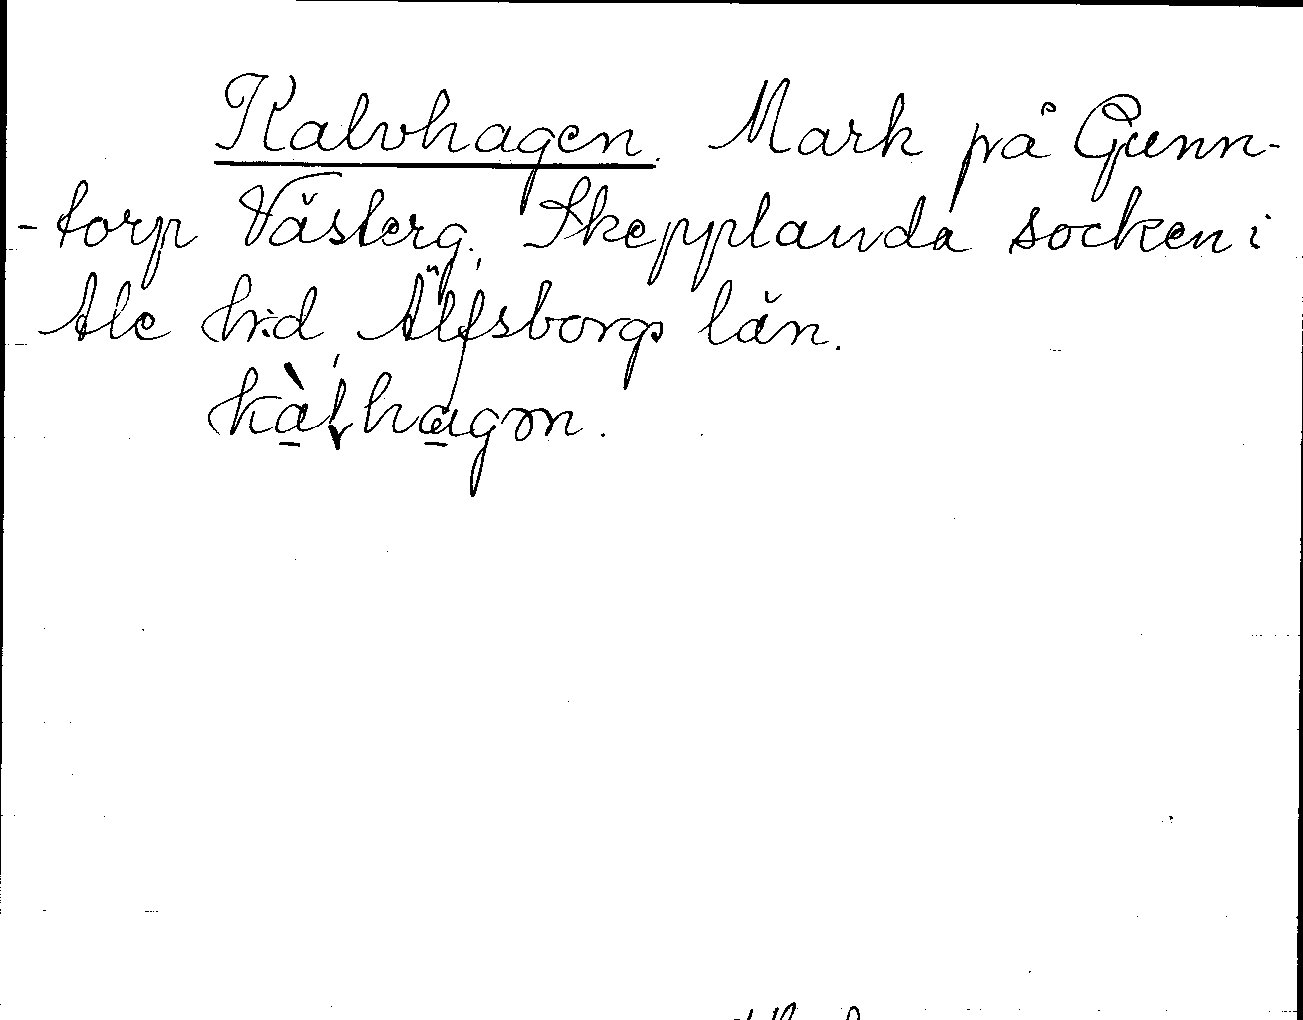 Kalvhagen. Mark på Gunn-
-torp Västerg. Skepplanda socken i
Ale h:d, Älfsborgs län.
kàl̨hagən.